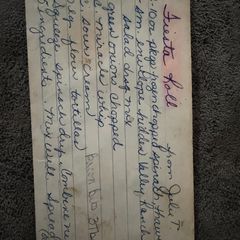 Fiesta Roll from Julie T
10oz pkg frozen chopped spinach thaw
sm envelope hidden Valley ranch
salad drsg mix
green onions chopped
miracle whip
c. sour cream
flour tortillas
Squeeze spinach dry. Combine
ingredients. Mix well. Spread